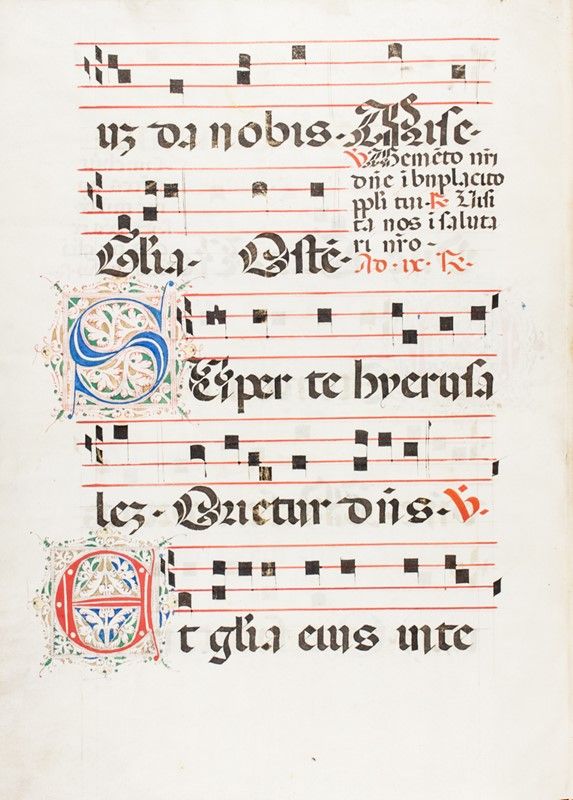 uz da nobis. Mise-
℣ Memēto nr̄i
dn̄e ī bn̄placito
ppl̄i tui. ℟ Visi
ta nos ī saluta
ri tuo.
Gl̄ia. Ostē.
Ad. ix. ℟.
SUper te hyerusa
lez. Orietur dn̄s. ℣.
Et gl̄ia eius in te